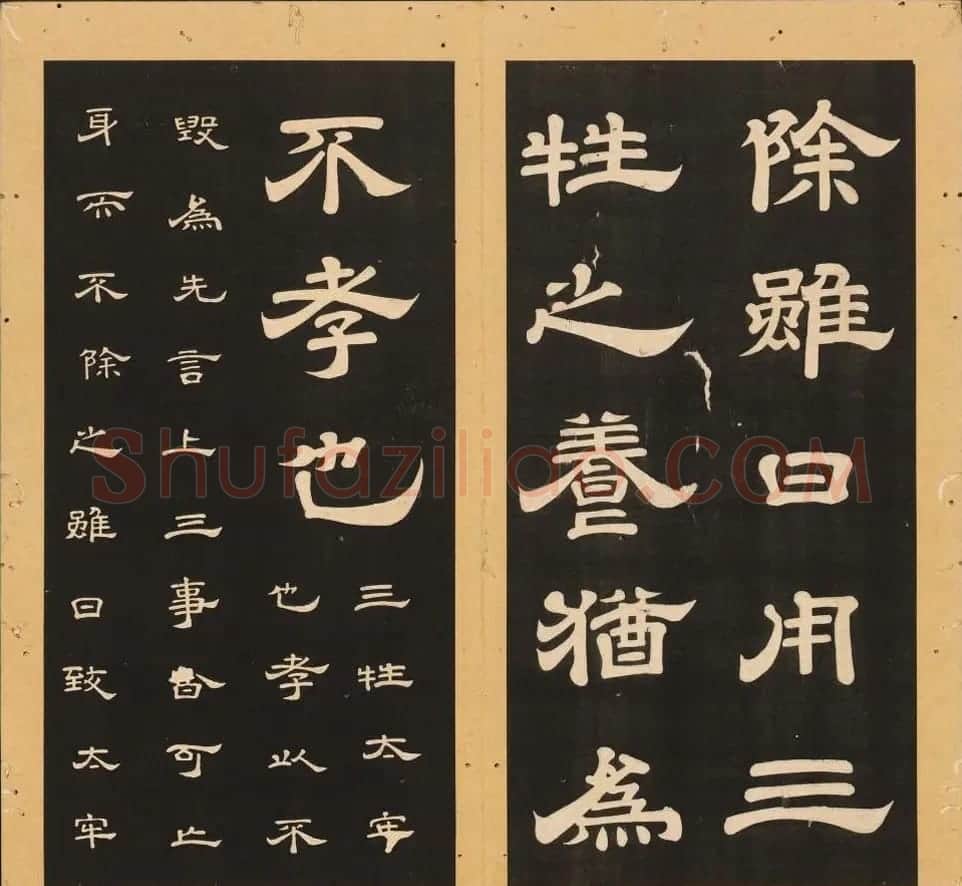 除雖日用三
牲之養猶為
不孝也
三牲太牢
也孝以不
毀為先言上三事皆可亡
身而不除之雖日致太牢
Shufaziliao.COM